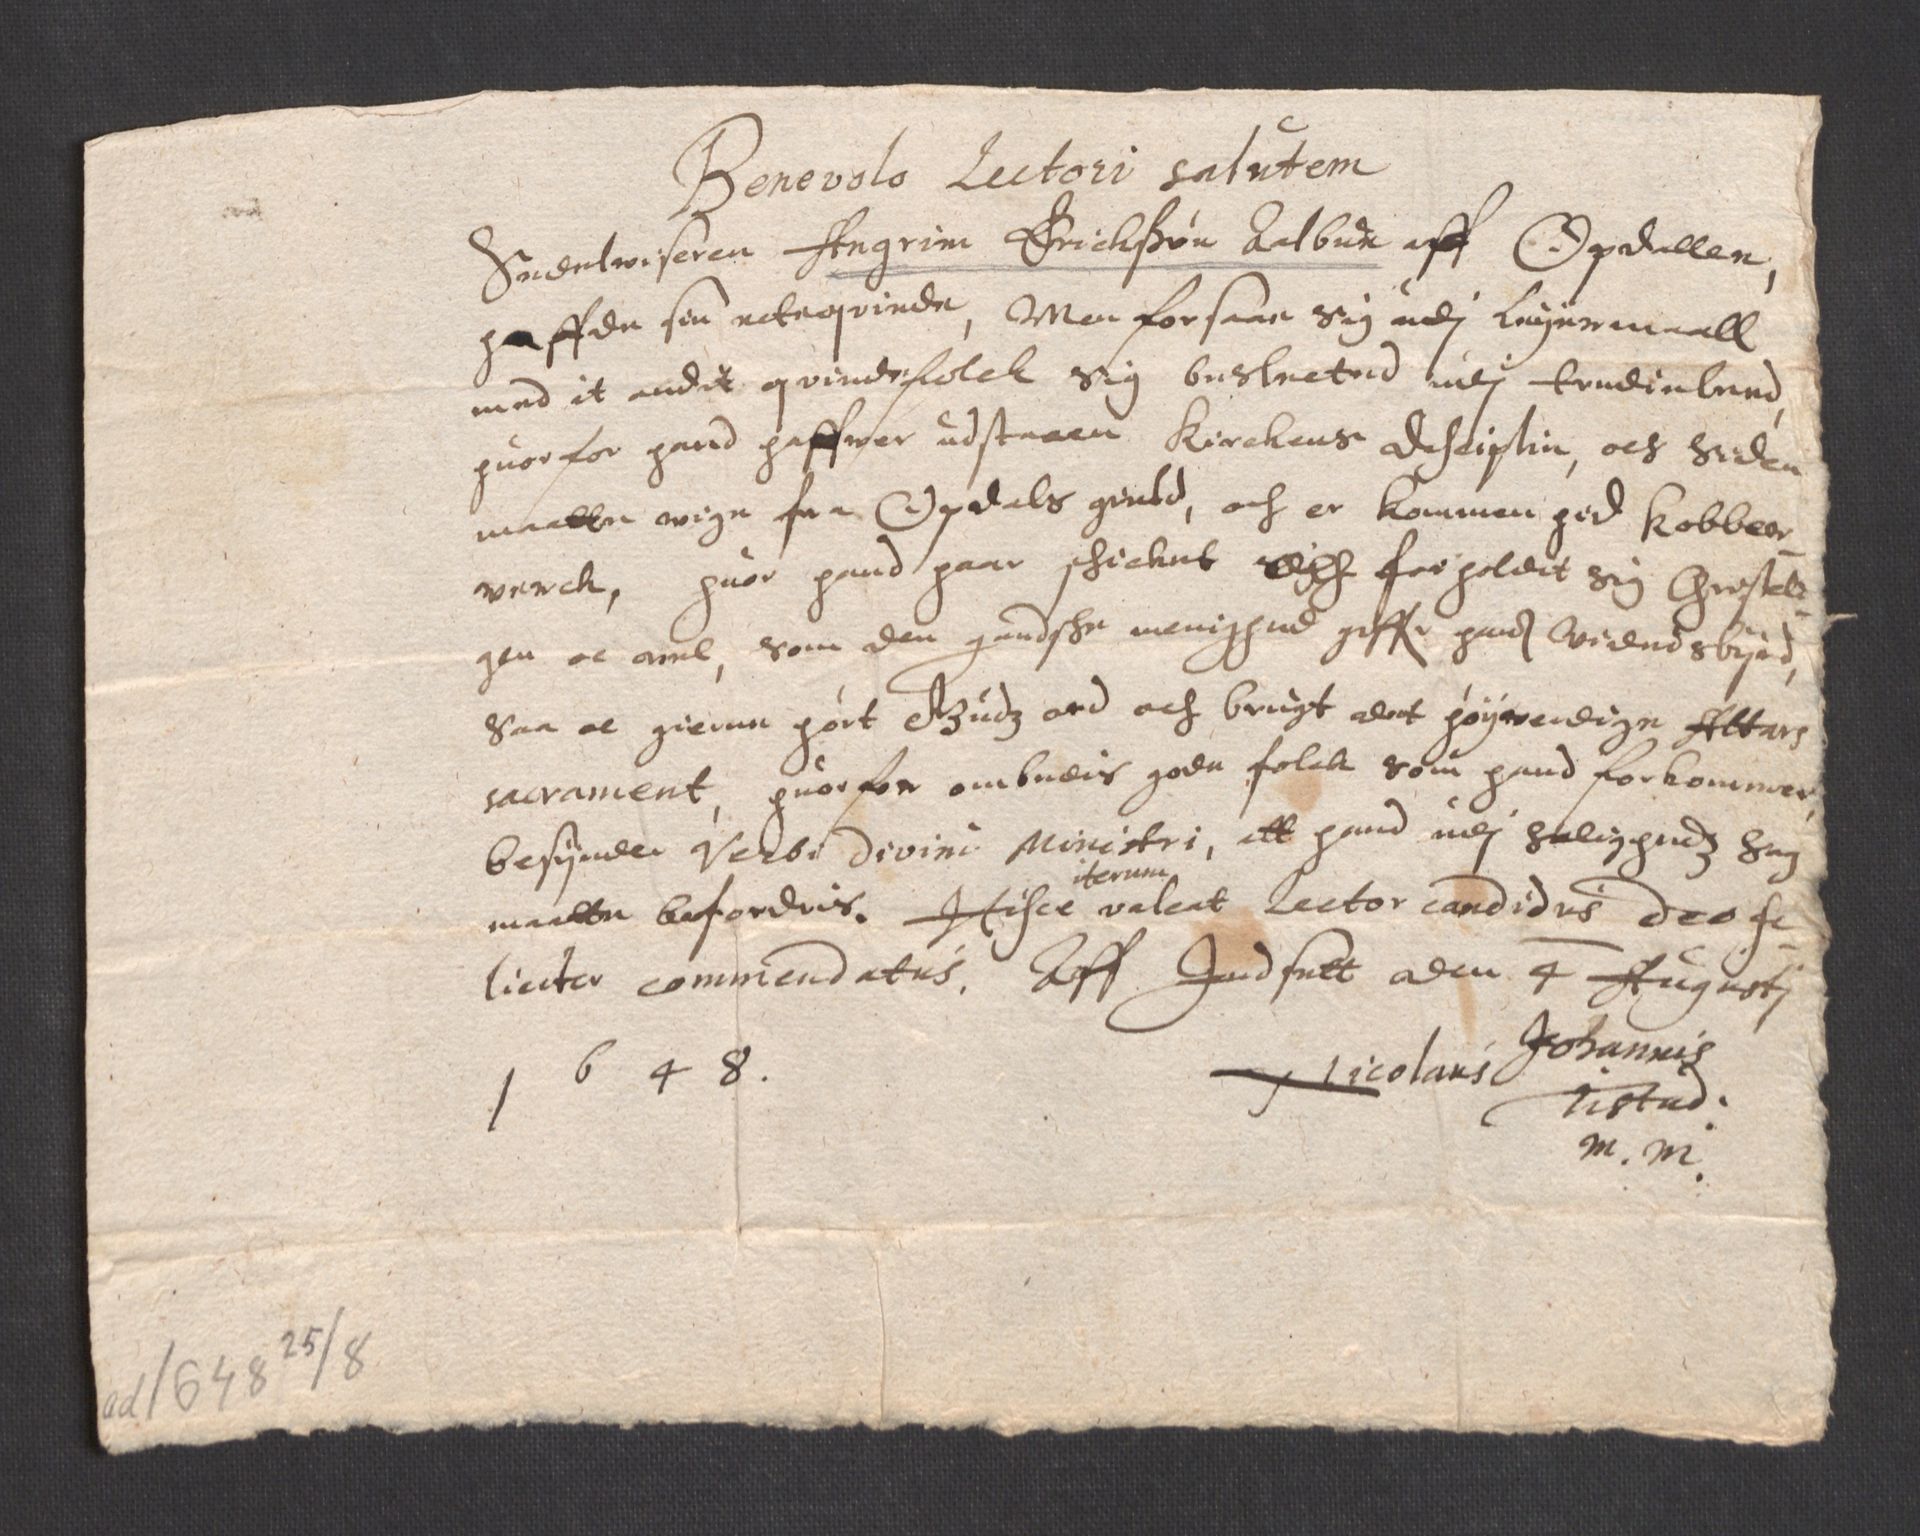 Benevolo Lectori salutem
Seddelwiseren Angrim Erichssøn Aalbue aff Opdallen,
haffde sin ectequinde, Men forsaae sig udj Leyermaall
med it andit quindefolck sig beslected udj tredieleed,
huorfor hand haffwer udstaaen Kirckens desciplin, och siden
maatte wige fra Opdals gield, och er kommen hid Kobber-
werck, huor hand haar schicket och forholdet sig Christeli-
gen oc well, som den gandsche menighed giffr hand Vidnedsbyrd,
saa oc gierne hört Gudz ord och brugt det höywerdige Altars
sacrament, huorfor ombedis gode folck som hand forkommer,
besynder Verbi divini Ministri, att hand udj salighedz sag
maatte befordris. Hisce iterum valeat Lector candidus deo fe-
liciter commendatus. Aff Indset den 4 Augustj
1648. Nicolaus Johannis
Tistad.
m. m.
ad 1648 25/8